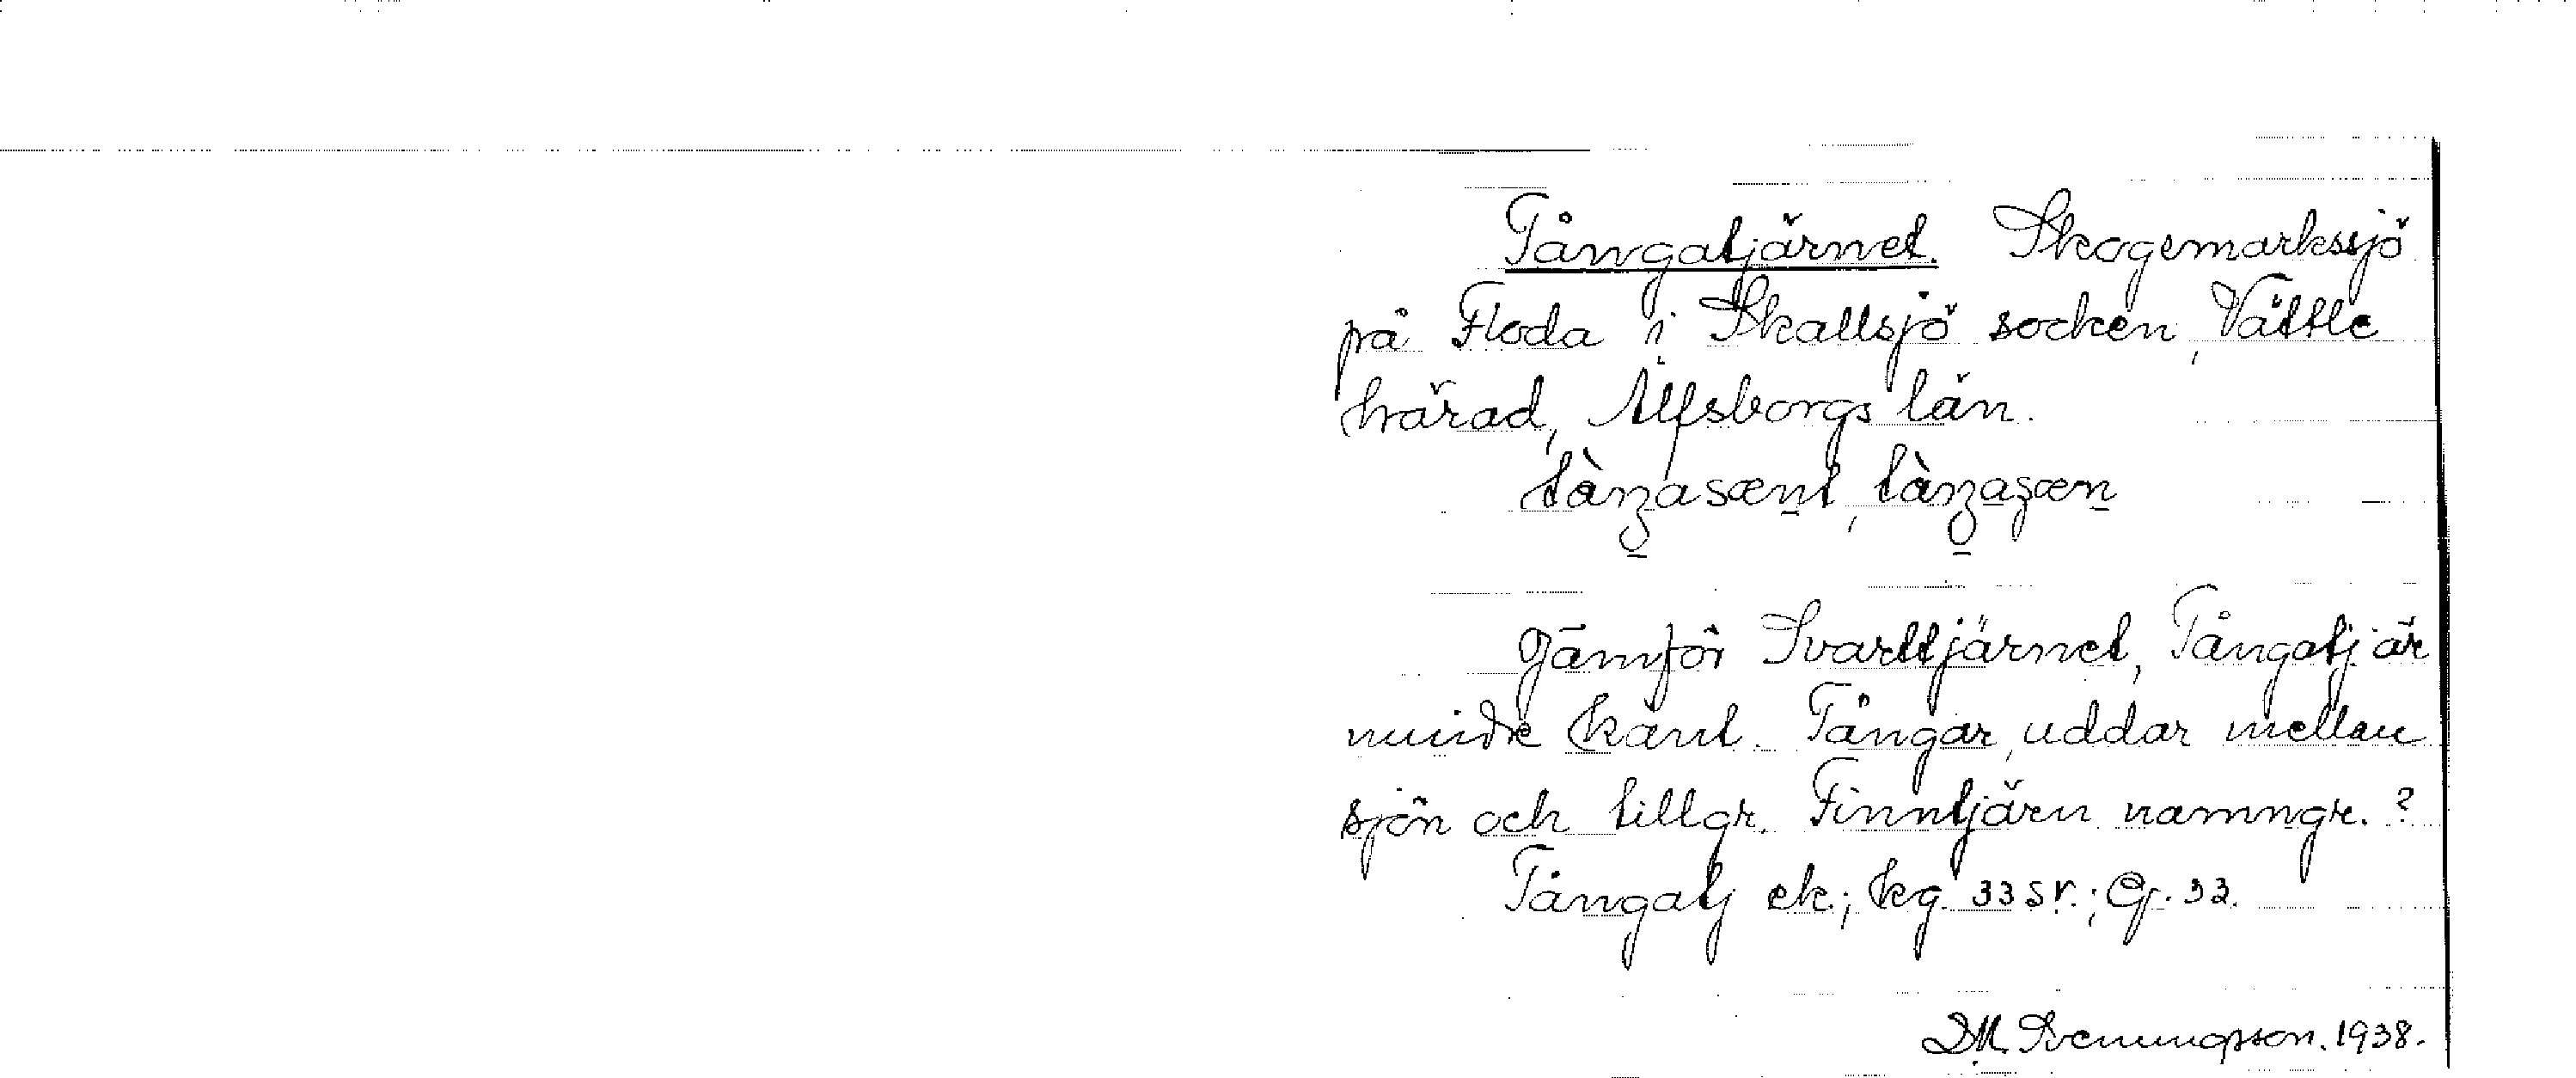 Tångatjärnet. Skogsmarkssjö
på Floda i Skallsjö socken, Vättle
härad, Älfsborgs län.
Jämför Svarttjärnet, Tångatj är
mindre känt. Tångar, uddar mellan
sjön och tillgr. Finntjärn namngr.?
Tångatj ek.; kg 33 sr.; Gj. 32.
D.M. Svenungsson. 1938.